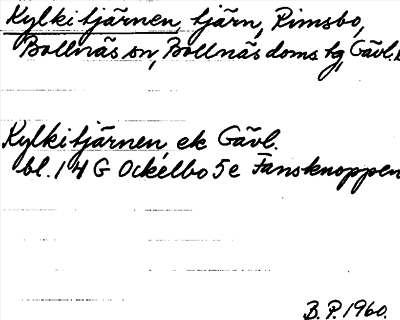 Kylkitjärnen, tjärn, Rimsbo,
Bollnäs sn, Bollnäs doms hg, Gävl.
Kylkitjärnen, ek Gävl.
bl. 14 G Ockelbo 5e Fansknoppen
B.P. 1960.